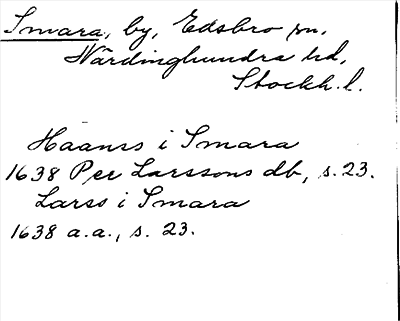 Smara, by, Edsbro sn,
Närdinghundra hd,
Stockh. l.
Haanss i Smara
1638 Per Larssons db, s. 23.
Larss i Smara
1638 a.a., s. 23.